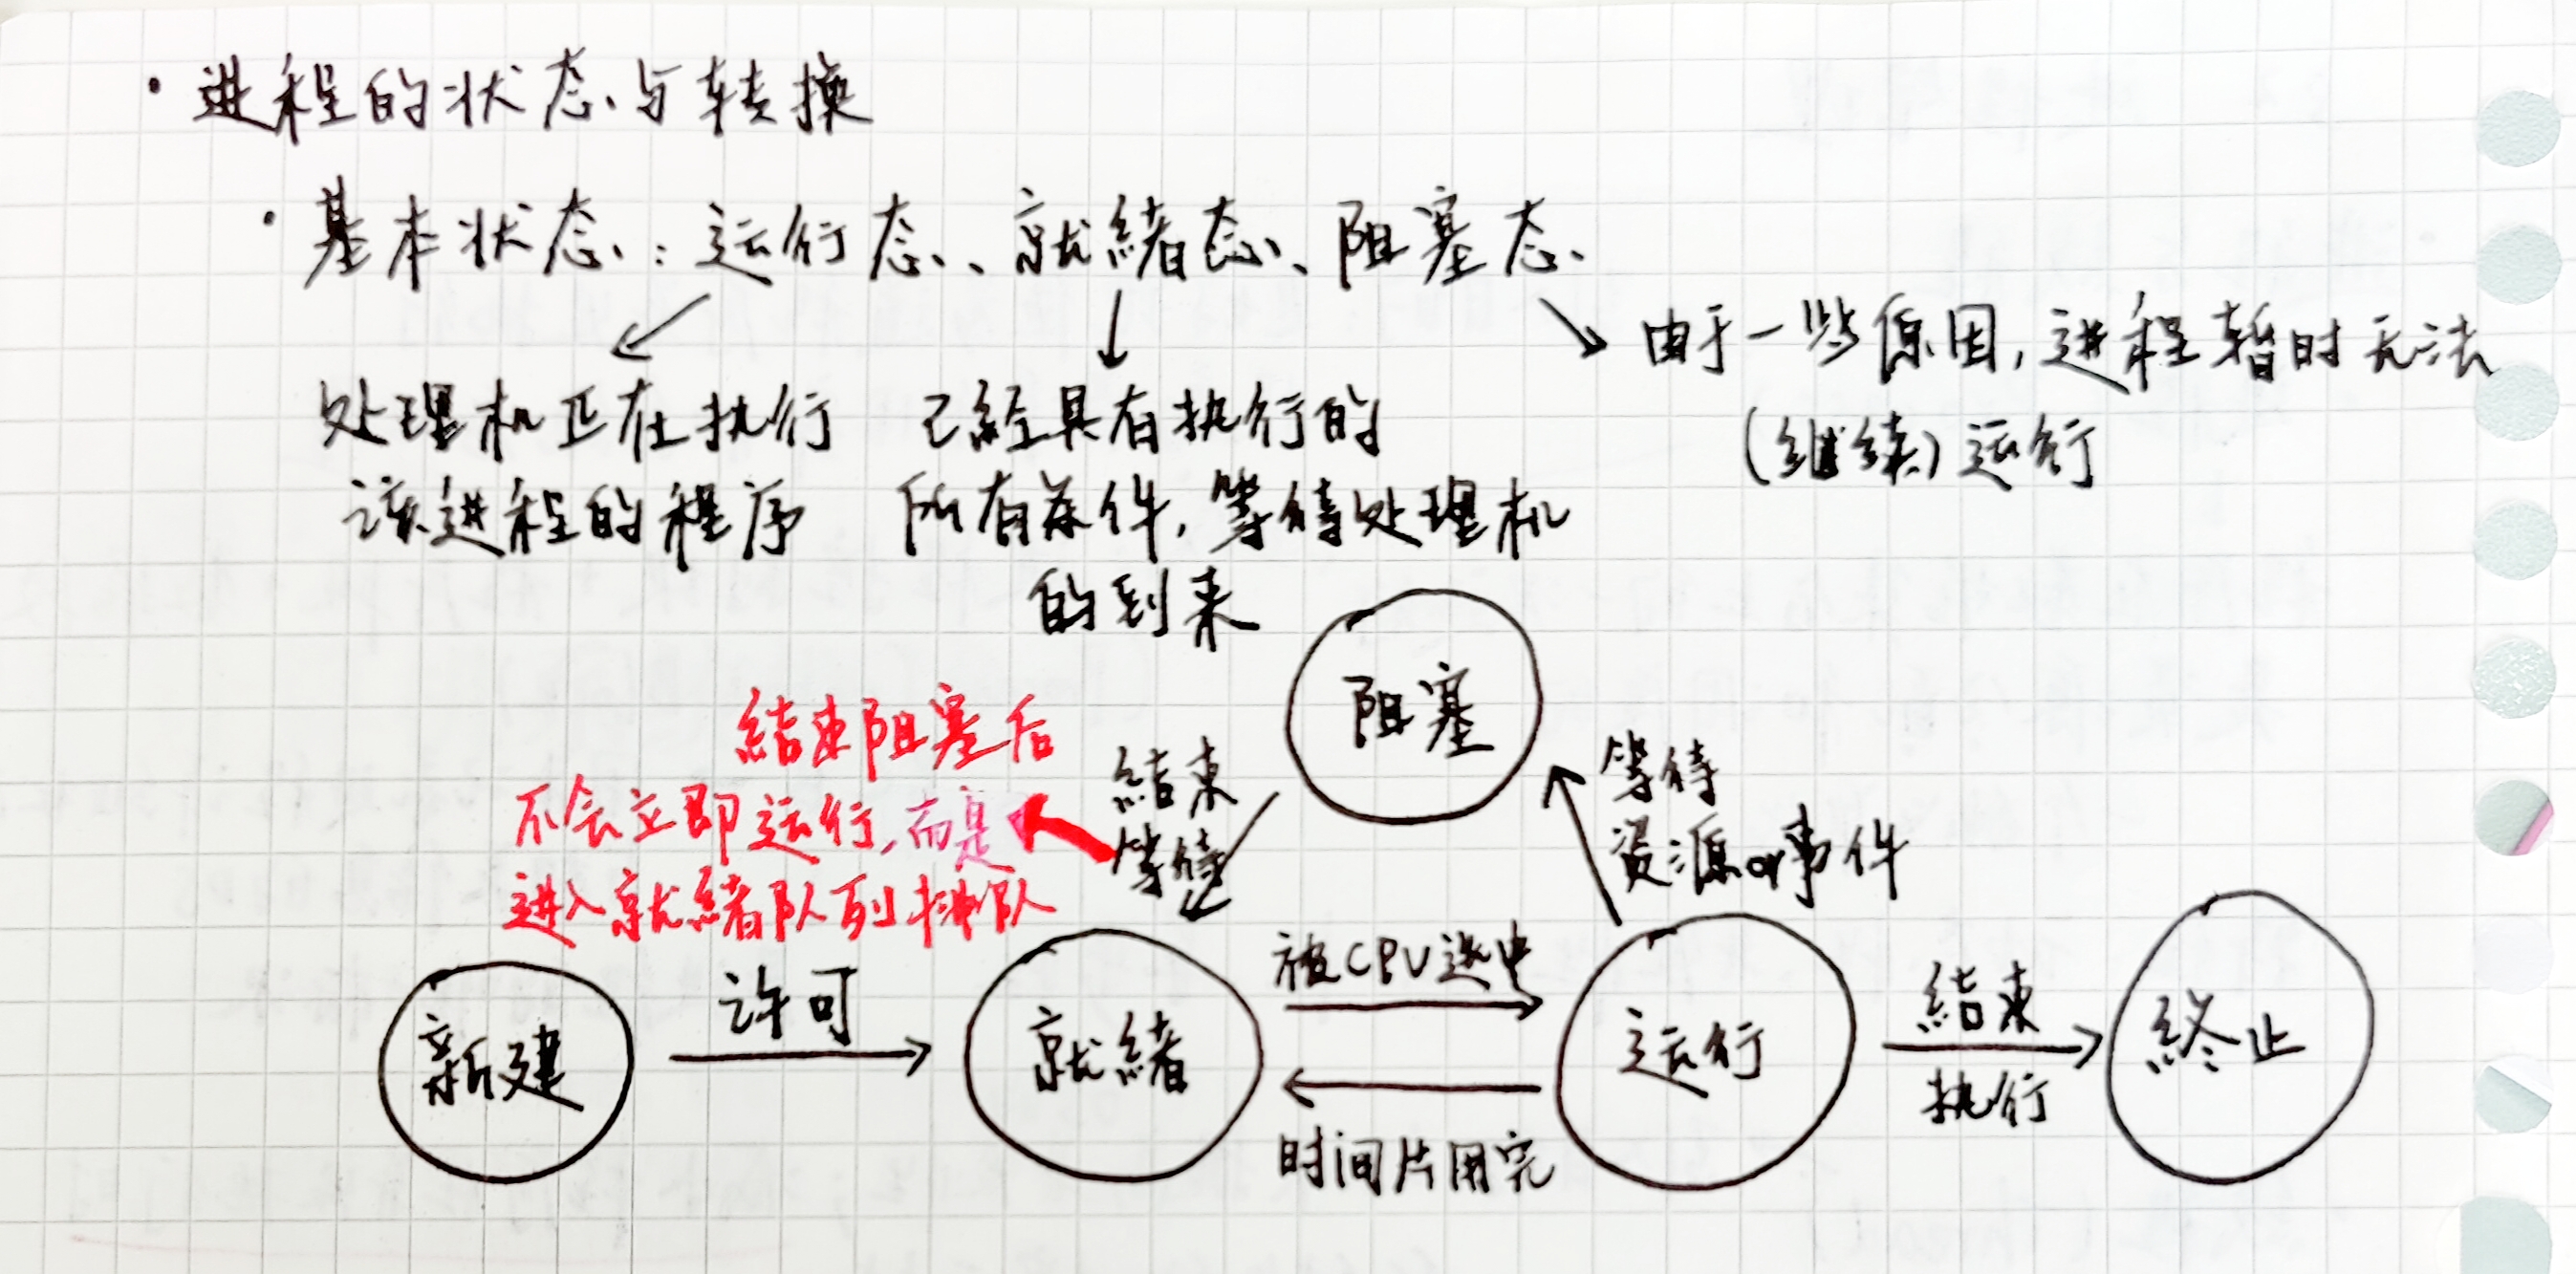 ·进程的状态与转换
·基本状态:运行态、就緒态、阻塞态
由于一些原因,进程暂时无法
(继续)运行
处理机正在执行
该进程的程序
已經具有执行的
所有条件,等待处理机
的到来
阻塞
結束阻塞后
不会立即运行,而是
进入就緒队列排队
結束
等待
等待
资源or事件
新建
许可
就緒
被CPU选中
时间片用完
运行
結束
执行
終止